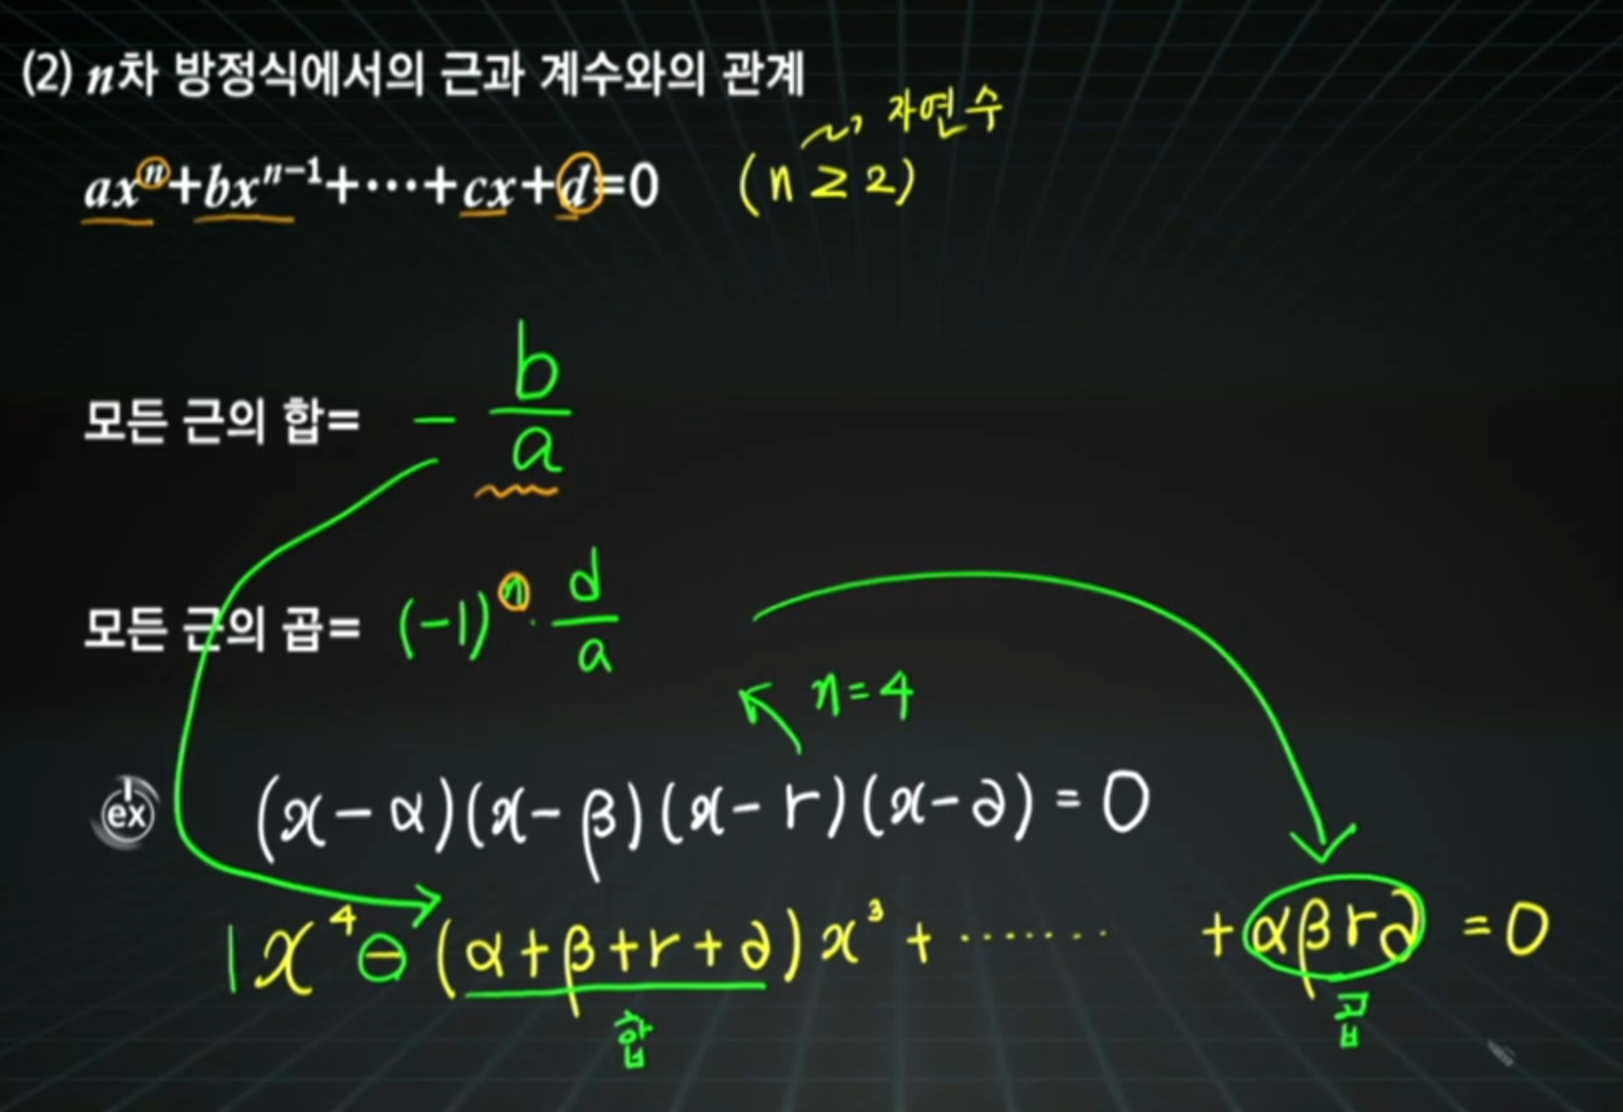 (2) n차 방정식에서의 근과 계수와의 관계
자연수
axⁿ+bxⁿ⁻¹+⋯+cx+d=0 (n ≥ 2)
모든 근의 합= - b/a
모든 근의 곱= (-1)ⁿ · d/a
n=4
ex (x-α)(x-β)(x-r)(x-∂)=0
1x⁴ - (α+β+r+∂)x³ + ······· + αβr∂ = 0
합 곱